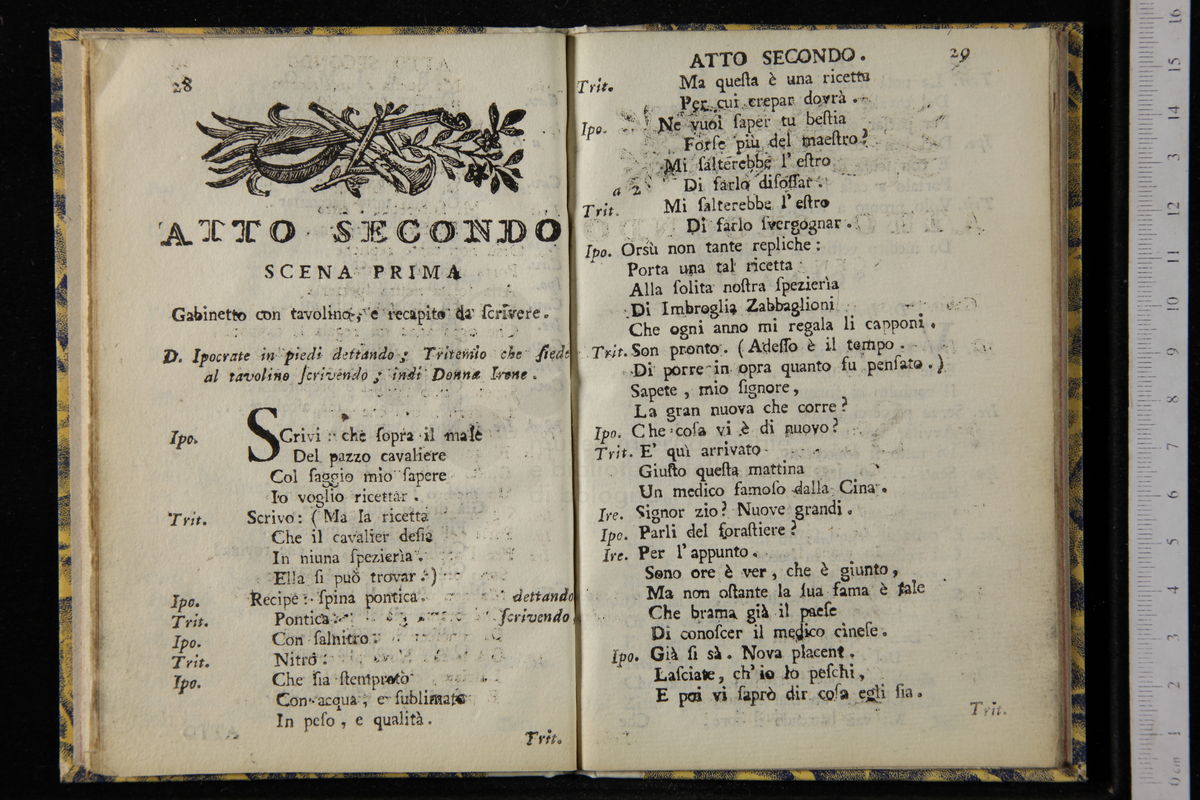 28
ATTO SECONDO
SCENA PRIMA
Gabinetto con tavolino, e recapito da ſcrivere.
D. Ipocrate in piedi dettando; Tritemio che ſiede
al tavolino ſcrivendo; indi Donna Irene.
Ipo. SCrivi: che ſopra il male
Del pazzo cavaliere
Col ſaggio mio ſapere
Io voglio ricettar.
Trit. Scrivo: (Ma la ricetta
Che il cavalier deſia
In niuna ſpezierìa
Ella ſi può trovar.)
Ipo. Recipe: ſpina pontica. dettando
Trit. Pontica: ſcrivendo
Ipo. Con ſalnitro:
Trit. Nitro:
Ipo. Che ſia ſtemprato
Con acqua, e ſublimato
In peſo, e qualità.
Trit.
ATTO SECONDO. 29
Trit. Ma queſta è una ricetta
Per cui crepar dovrà.
Ipo. Ne vuoi ſaper tu beſtia
Forſe più del maeſtro?
Mi ſalterebbe l' eſtro
a 2 Di farlo diſoſſar.
Trit. Mi ſalterebbe l' eſtro
Di farlo ſvergognar.
Ipo. Orsù non tante repliche:
Porta una tal ricetta
Alla ſolita noſtra ſpezierìa
Di Imbroglia Zabbaglioni
Che ogni anno mi regala li capponi.
Trit. Son pronto. (Adeſſo è il tempo
Di porre in opra quanto fu penſato.)
Sapete, mio ſignore,
La gran nuova che corre?
Ipo. Che coſa vi è di nuovo?
Trit. E' quì arrivato
Giuſto queſta mattina
Un medico famoſo dalla Cina.
Ire. Signor zio? Nuove grandi.
Ipo. Parli del foraſtiere?
Ire. Per l' appunto.
Sono ore è ver, che è giunto,
Ma non oſtante la ſua fama è tale
Che brama già il paeſe
Di conoſcer il medico cineſe.
Ipo. Già ſi sà. Nova placent.
Laſciate, ch' io lo peſchi,
E poi vi ſaprò dir coſa egli ſia.
Trit.
16
15
14
13
12
11
10
9
8
7
6
5
4
3
2
1
0 cm